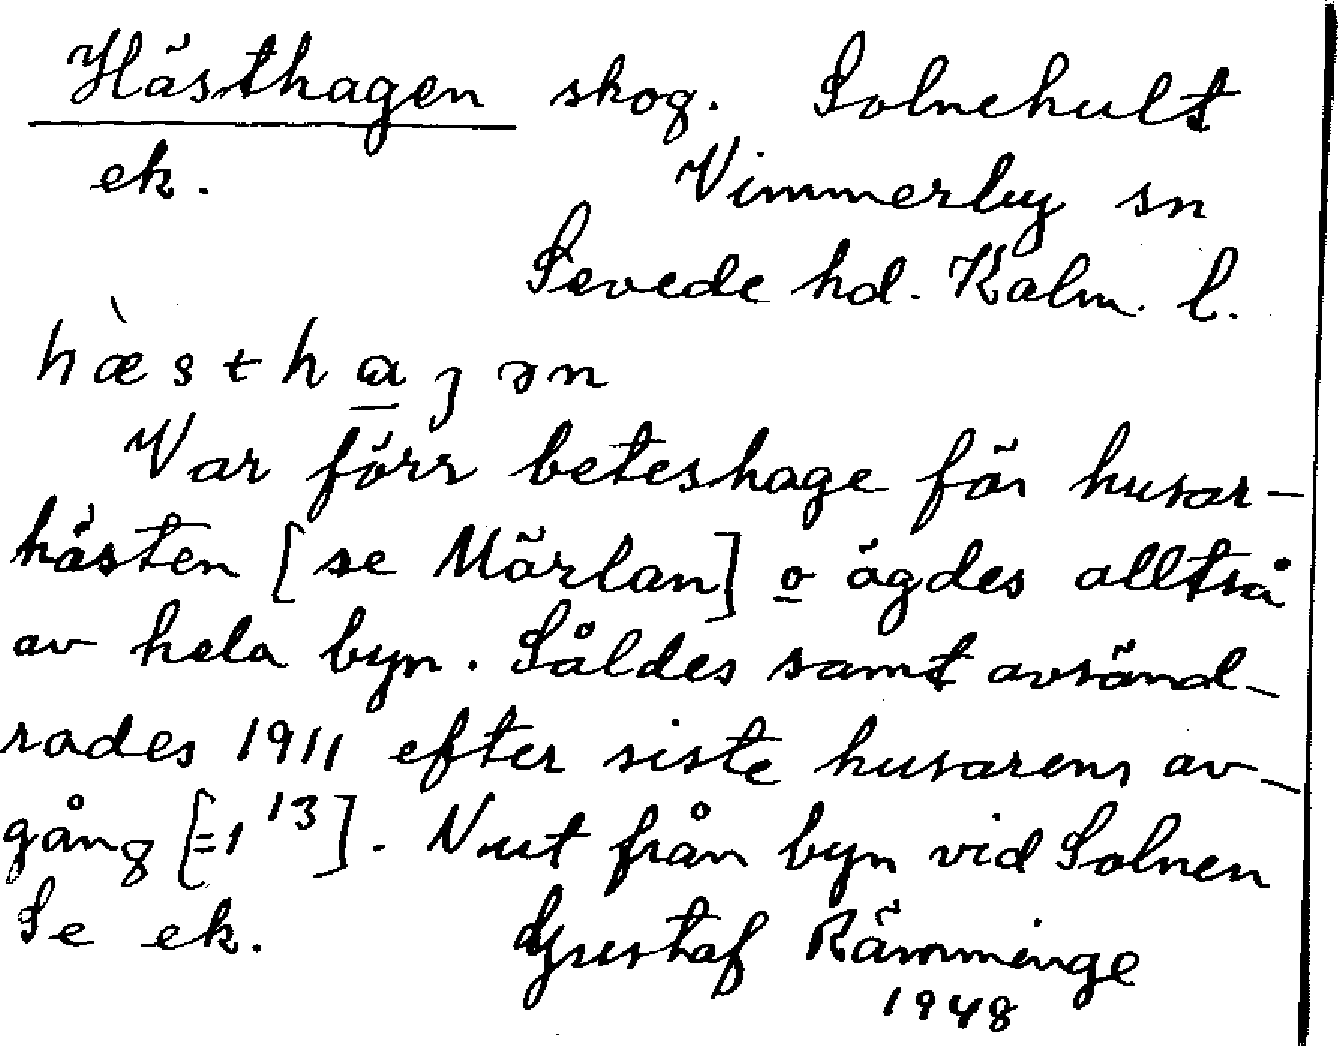 Hästhagen skog. Solnehult
ek. Vimmerby sn
Sevede hd. Kalm. l.
hæ̀sthaȷən
Var förr beteshage för husar-
hästen [se Mörlan] o ägdes alltså
av hela byn. Såldes samt avsönd-
rades 1911 efter siste husarens av-
gång [=1¹³]. N ut från byn vid Solnen
Se ek. Gustaf Rämminge
1948